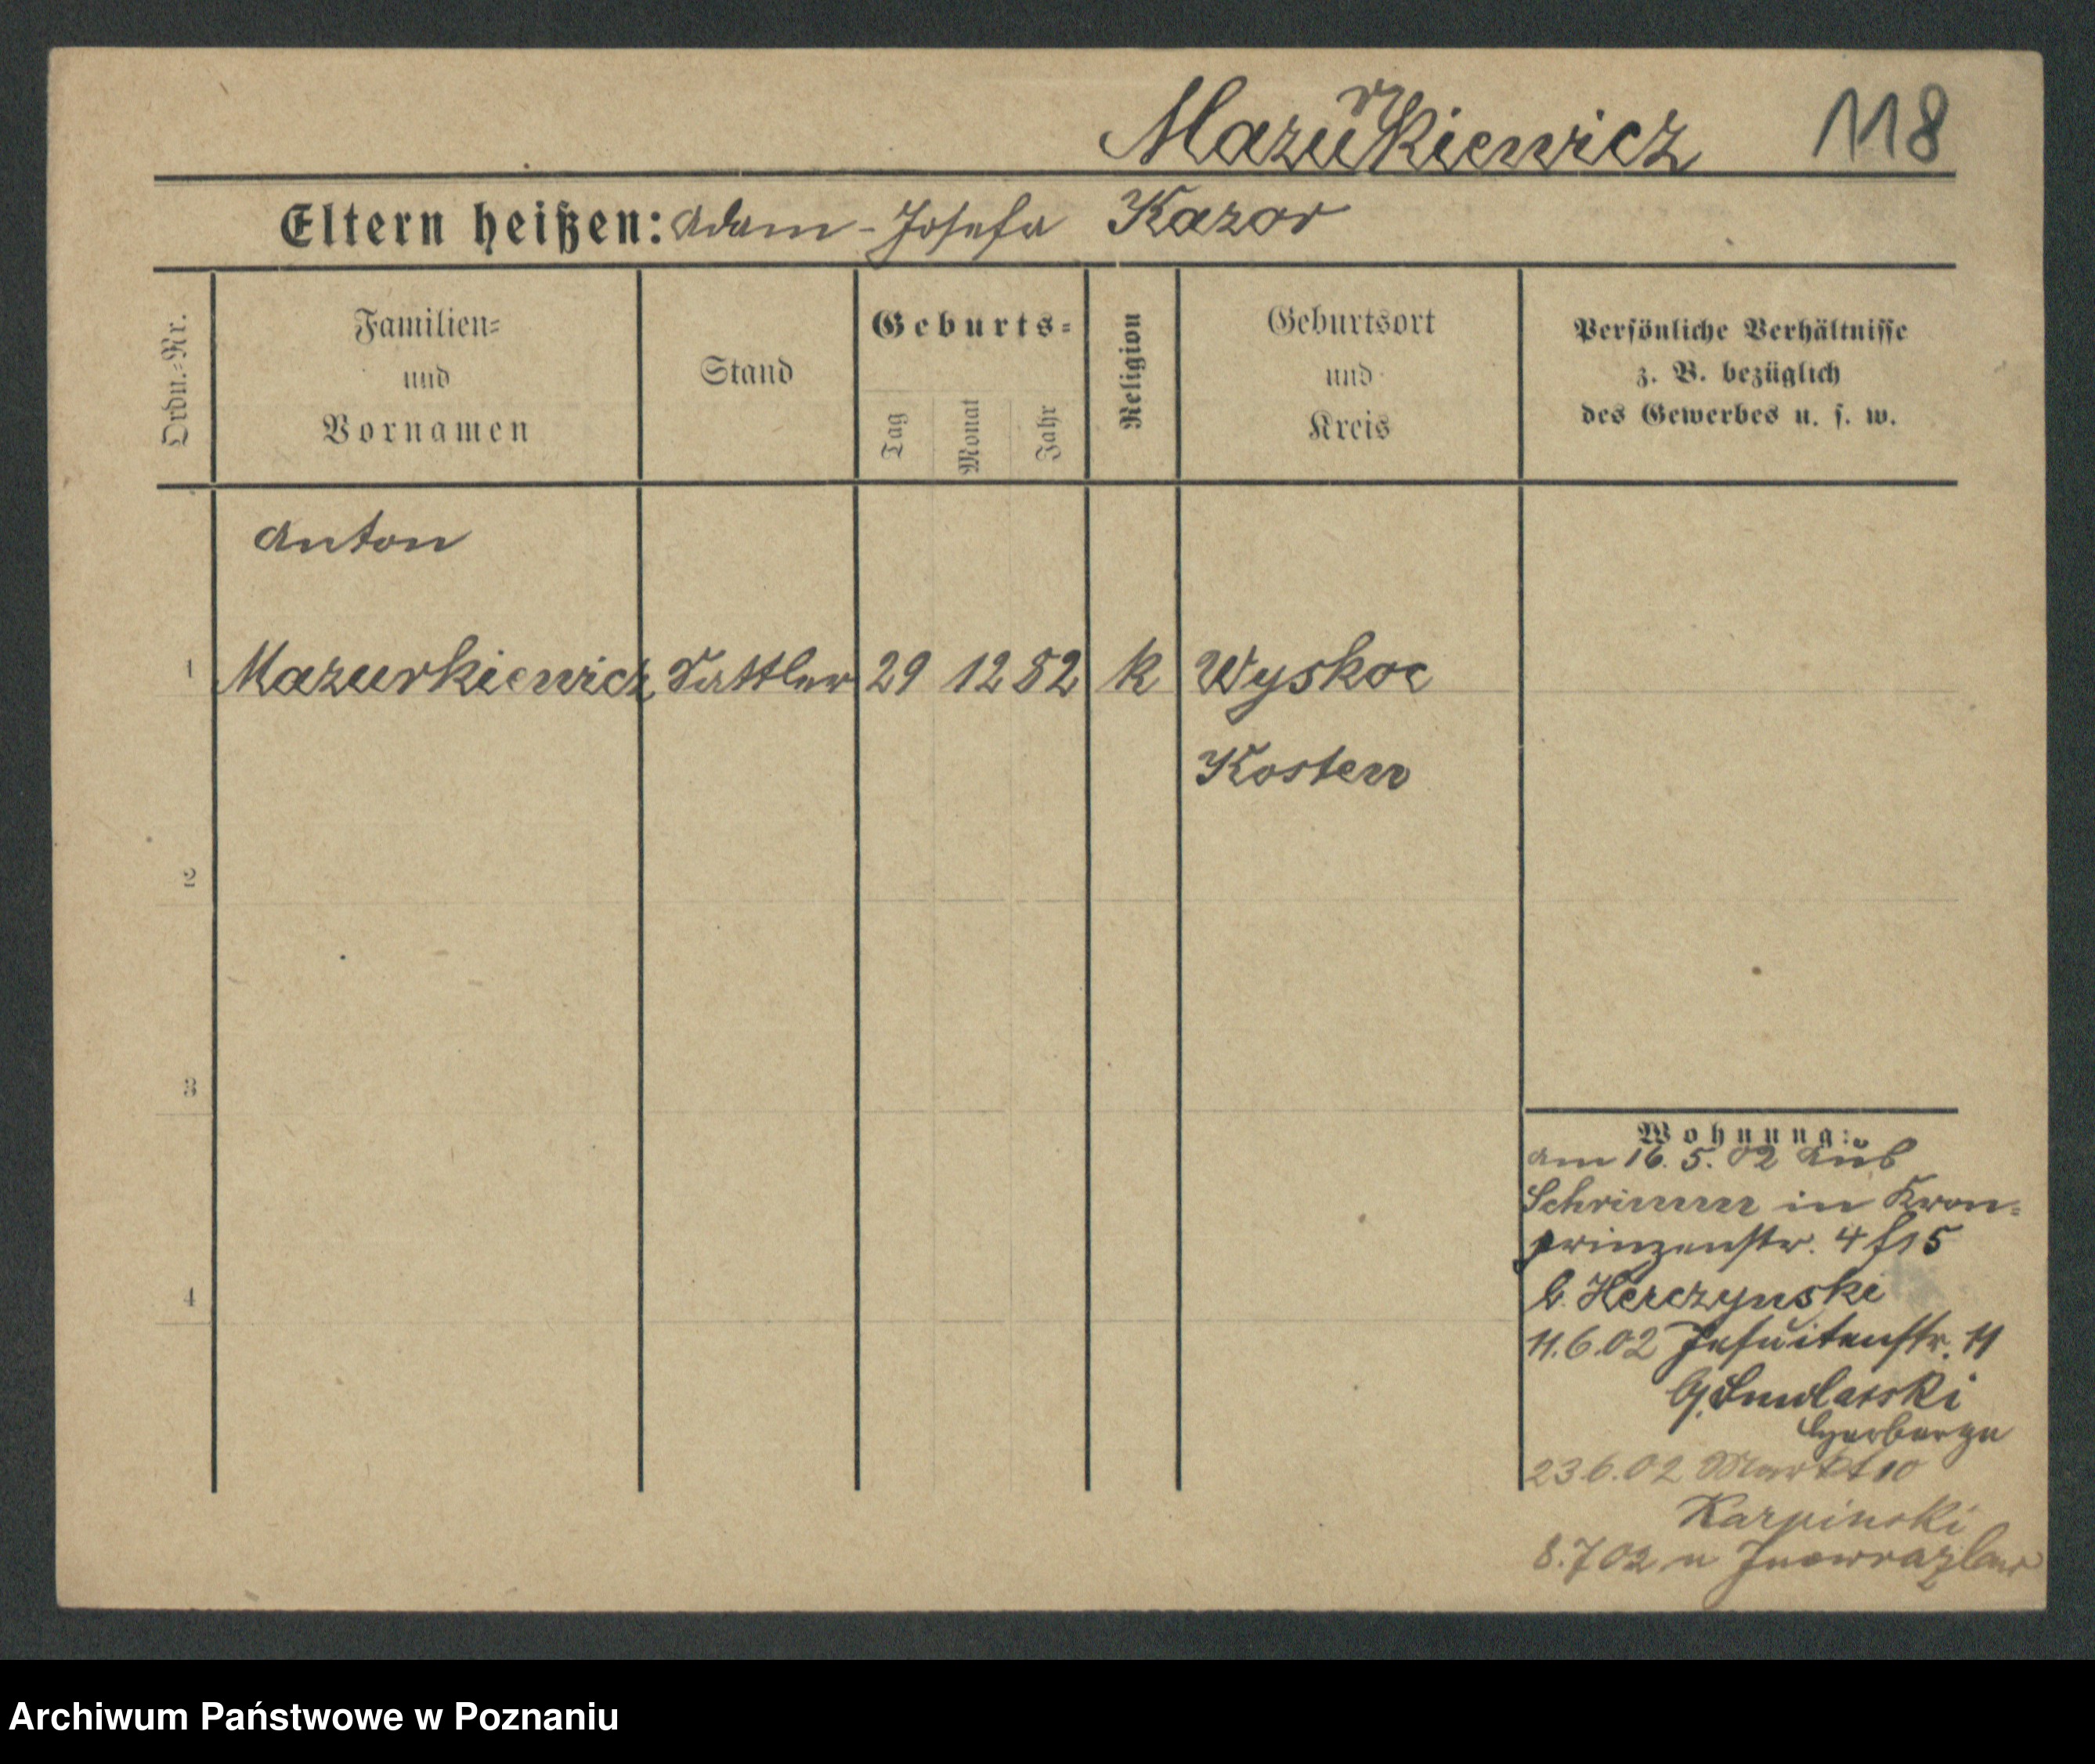 Mazurkiewicz 118
Eltern heißen: Adam - Josefa Kazor
Ordn.-Nr.
Familien-
und
Vornamen
Stand
Geburts-
Tag
Monat
Jahr
Religion
Geburtsort
und
Kreis
Persönliche Verhältnisse
z. B. bezüglich
des Gewerbes u. s. w.
Anton
1 Mazurkiewicz Sattler 29 12 82 k Wyskoc
Kosten
2
3
4
Wohnung:
am 16. 5. 02 aus
Schrimm in Kron-
prinzenstr. 4
b. Herczynski
11.6.02 Jesuitenstr. 11
Herberge
23.6.02 Markt 10
Karpinski
8.7 02 n Inowrazlaw
Archiwum Państwowe w Poznaniu